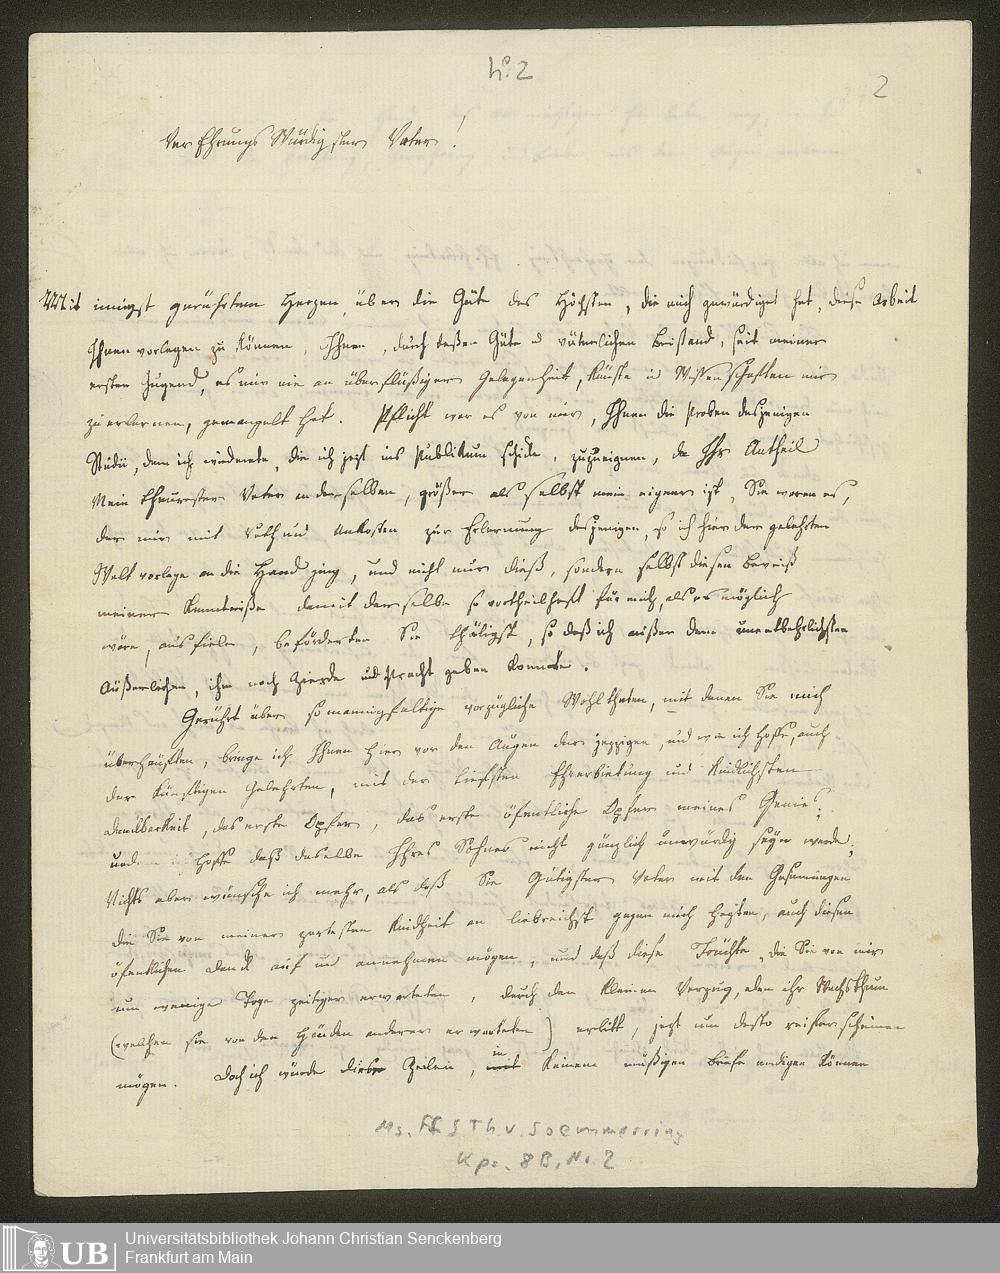 No. 2
2
VerEhrungsWürdigster Vater!
Mit innigst gerührtem Herzen, über die Güte des Höchsten, die mich gewürdiget hat, diese Arbeit
Ihnen vorlegen zu können, Ihnen, durch deßen Güte u väterlichen Beistand, seit meiner
ersten Jugend, es mir nie an überflüßiger Gelegenheit, Künste u Wissenschaften mir
zu erlernen, gemangelt hat. Pflicht war es von mir, Ihnen die Proben desjenigen
Studii, dem ich wiedmete, die ich jezt ins Publikum schicke, zuzueignen, da Ihr Antheil
Mein theurester Vater an derselben, größer als selbst mein eigener ist, Sie waren es,
der mir mit Rath und Unkosten zur Erlernung desjenigen, so ich hier der gelehrten
Welt vorlege an die Hand ging, und nicht nur dieß, sondern selbst diesen Beweiß
meiner Kenntniße damit derselbe so vortheilhaft für mich, als es möglich
wäre, ausfiele, beförderten Sie thätigst, so daß ich außer dem unentbehrlichsten
Äußerlichen, ihm noch Zierde und Pracht geben konnte.
Gerührt über so mannigfaltige vorzügliche Wohlthaten, mit denen Sie mich
überhäuften, bringe ich Ihnen hier vor den Augen der jezzigen, und wie ich hoffe, auch
der künftigen Gelehrten, mit der tiefsten Ehrerbietung und kindlichsten
Dankbarkeit, das erste Opfer, das erste öfentliche Opfer meines Genies;
und hoffe daß daselbe Ihres Sohnes nicht gänzlich unwürdig seyn werde;
Nichts aber wünsche ich mehr, als daß Sie Gütigster Vater mit den Gesinnungen
die Sie von meiner zartesten Kindheit an liebreichst gegen mich hegten, auch diesen
öfentlichen Dank auf und annehmen mögen, und daß diese Früchte, die Sie von mir
um wenige Tage zeitiger erwarteten, durch den kleinen Verzug, den ihr Wachsthum
(welchen sie von den Händen anderer erwarteten) erlitt, jezt um desto reifer scheinen
mögen. Doch ich würde diese Zeilen, in keinem müßigen Briefe endigen können
Ms. Ff S. Th. v. Soemmerring
Kps. 8B, Nr. 2
UB Universitätsbibliothek Johann Christian Senckenberg
Frankfurt am Main